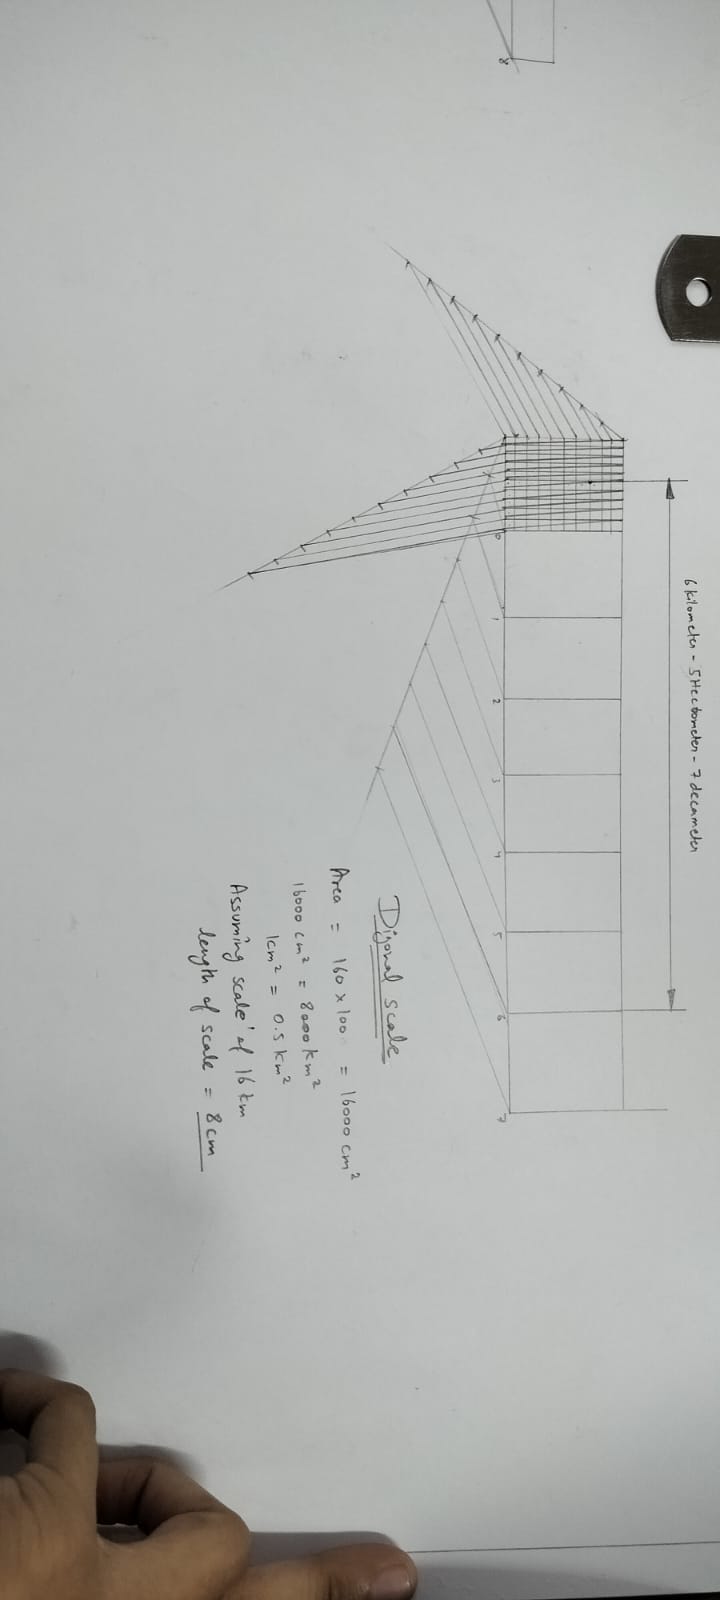 6 kilometer - 5 Hectometer - 7 decameter
8
0 1 2 3 4 5 6 7
Digonal scale
Area = 160 x 100 = 16000 cm²
16000 cm² = 8000 km²
1cm² = 0.5 km²
Assuming scale of 16 km
length of scale = 8cm